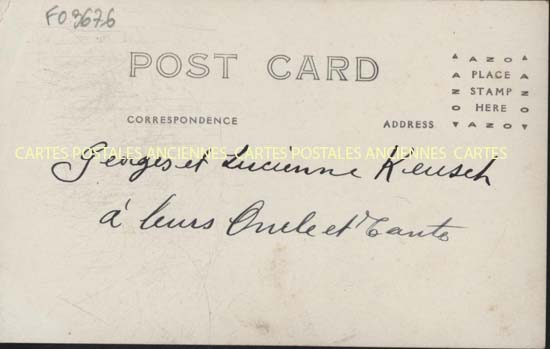 FO 9676
POST CARD
AZO
PLACE
STAMP
HERE
AZO
CORRESPONDENCE
ADDRESS
CARTES POSTALES ANCIENNES CARTES POSTALES ANCIENNES CARTES
Georges et Lucienne Keusch
à leurs Oncle et Tante